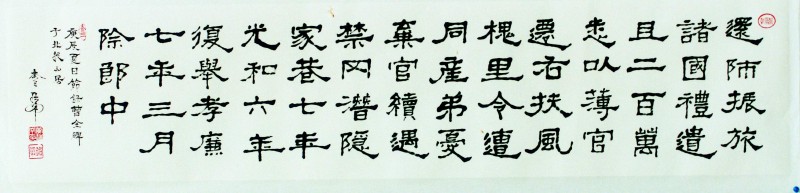 還師振旅
諸國禮遺
且二百萬
悉以薄官
遷右扶風
槐里令遭
同産弟憂
棄官續遇
禁网潛隱
家巷七年
光和六年
復舉孝廉
七年三月
除郎中
庚辰夏日節臨曹全碑
于北